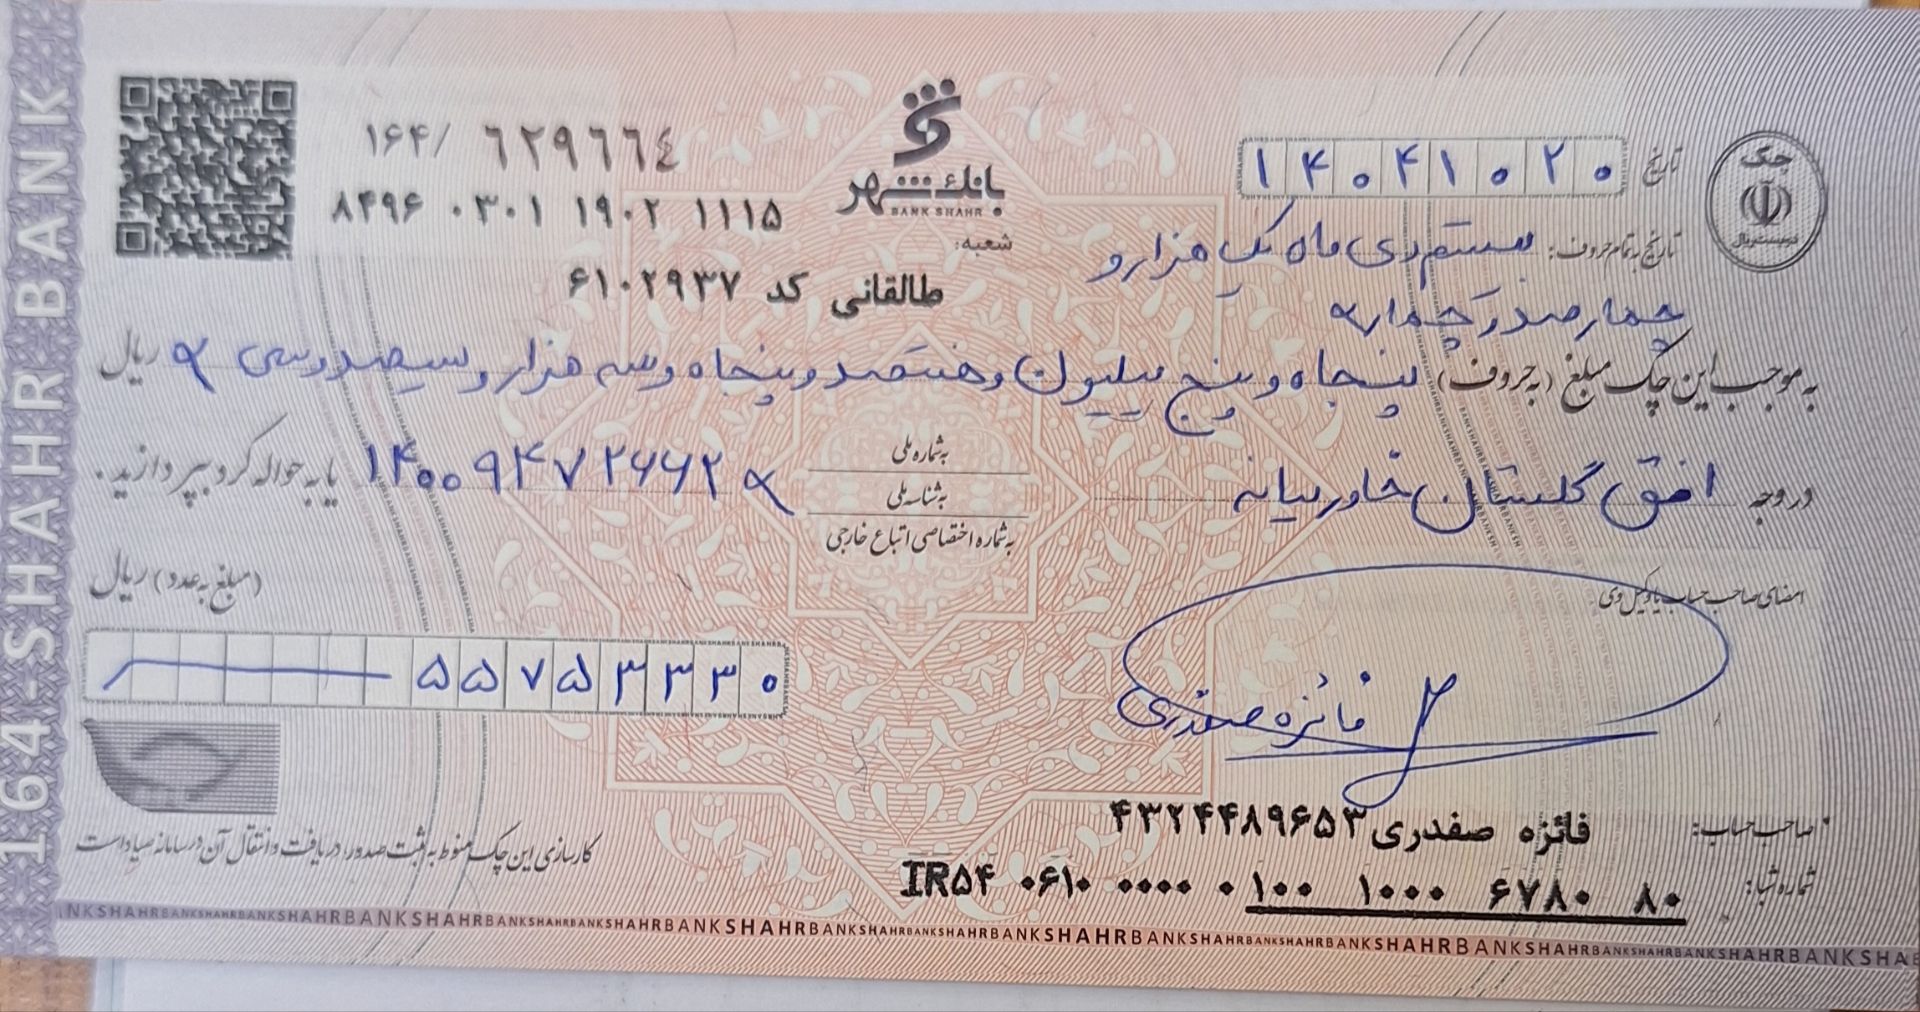 164-SHAHR BANK
۱۶۴/ ٦٢٩٦٦٤
۸۴۹۶ ۰۳۰۱ ۱۹۰۲ ۱۱۱۵
بانك شهر
BANK SHAHR
شعبه:
طالقانی کد ۶۱۰۲۹۳۷
چک
دویست ریال
تاریخ ۱۴۰۴۱۰۲۰
تاریخ به تمام حروف: بیستم دی ماه یک هزار و
چهارصد و چهار
به موجب این چک مبلغ (به حروف) پنجاه و پنج میلیون و هفتصد و پنجاه و سه هزار و سیصد و سی ریال
در وجه افق گلستان خاورمیانه
به شماره ملی
به شناسه ملی
به شماره اختصاصی اتباع خارجی
۱۴۰۰۹۴۷۲۶۶۲ یا به حواله کرد بپردازید.
(مبلغ به عدد) ریال
۵۵۷۵۳۳۳۰
امضای صاحب حساب یا وکیل وی
فائزه صفدری
صاحب حساب: فائزه صفدری ۴۳۲۴۴۸۹۶۵۳
شماره شبا: IR۵۴ ۰۶۱۰ ۰۰۰۰ ۰۱۰۰ ۱۰۰۰ ۶۷۸۰ ۸۰
کارسازی این چک منوط به ثبت صدور، دریافت و انتقال آن در سامانه صیاد است